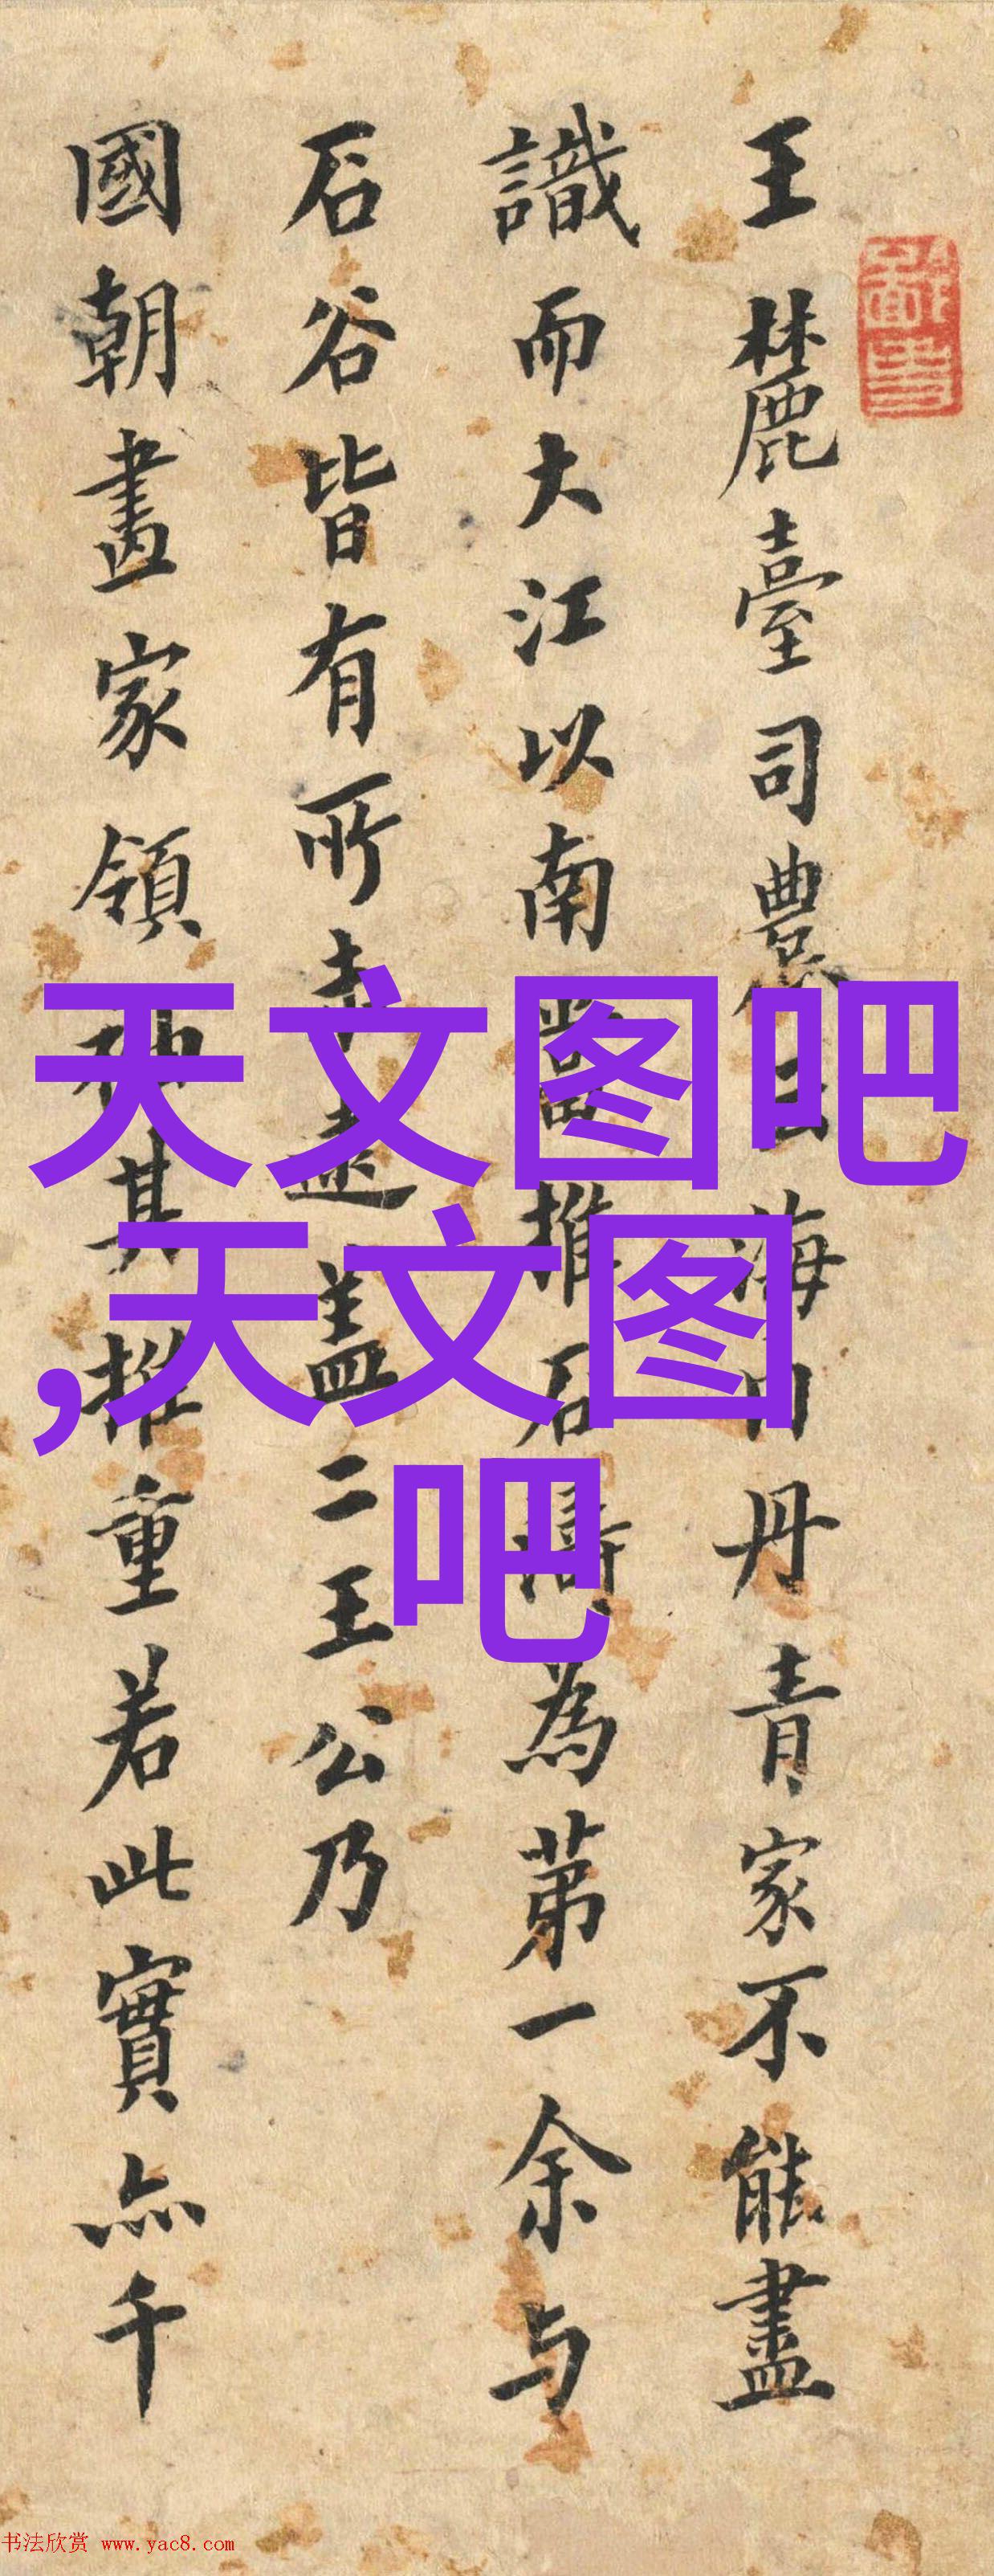 王麓臺司農云海内丹青家不能盡
識而大江以南當推石濤為第一余与
石谷皆有所未逮盖二王公乃
國朝畫家領袖其推重若此實亦千
天文图吧
,天文图
吧
书法欣赏 www.yac8.com